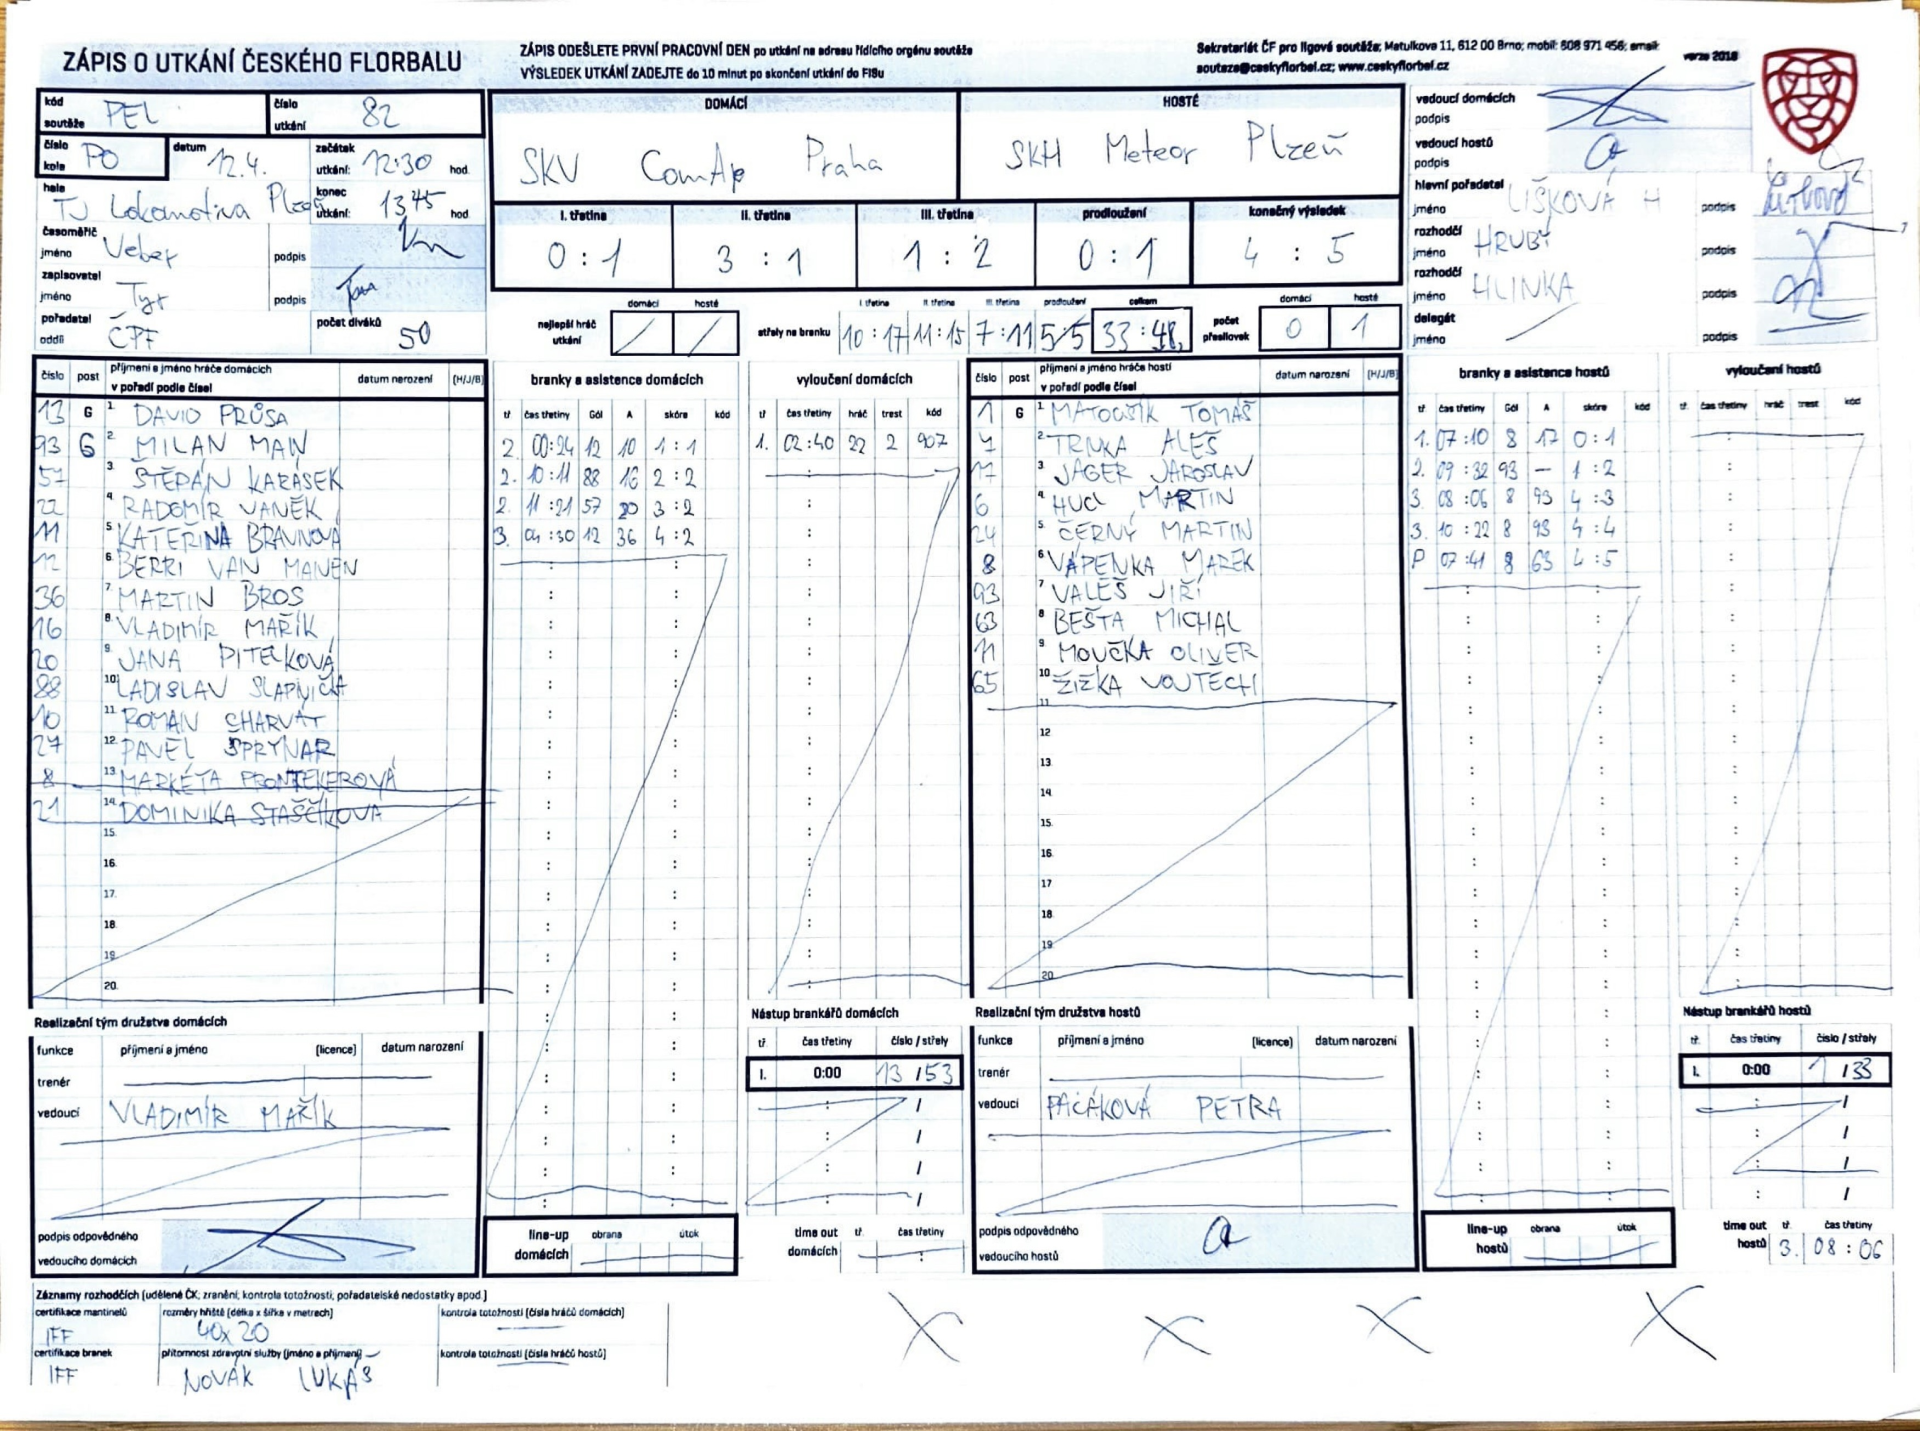 ZÁPIS O UTKÁNÍ ČESKÉHO FLORBALU
ZÁPIS ODEŠLETE PRVNÍ PRACOVNÍ DEN po utkání na adresu řídícího orgánu soutěže
VÝSLEDEK UTKÁNÍ ZADEJTE do 10 minut po skončení utkání do FISu
Sekretariát ČF pro ligové soutěže: Matulkova 11, 612 00 Brno; mobil: 608 971 456; email:
soutaze@ceskyflorbal.cz; www.ceskyflorbal.cz
verze 2018
kód soutěže PEL číslo utkání 82
číslo kola PO datum 12.4. začátek utkání: 12:30 hod
hala TJ Lokomotiva Plzeň konec utkání: 13 45 hod
časoměřič jméno Veber podpis
zapisovatel jméno Tyr podpis
pořadatel oddíl ČPF počet diváků 50
DOMÁCÍ HOSTÉ
SKV ComAp Praha SKH Meteor Plzeň
I. třetina II. třetina III. třetina prodloužení konečný výsledek
0:1 3:1 1:2 0:1 4:5
nejlepší hráč utkání domácí / hosté /
I. třetina II. třetina III. třetina prodloužení celkem
střely na branku 10:17 11:15 7:11 5/5 33:48,
počet přesilovek domácí 0 hosté 1
vedoucí domácích podpis
vedoucí hostů podpis
hlavní pořadatel jméno LIŠKOVÁ H podpis
rozhodčí jméno HRUBÝ podpis
rozhodčí jméno HLINKA podpis
delegát jméno podpis
číslo post příjmení a jméno hráče domácích v pořadí podle čísel datum nerození (H/J/B)
13 G 1. DAVID PRŮŠA
93 G 2. MILAN MAN
57 3. ŠTĚPÁN KARÁSEK
22 4. RADOMÍR VANĚK
11 5. KATEŘINA BRAVNOVÁ
12 6. BERRI VAN MANEN
36 7. MARTIN BROS
16 8. VLADIMÍR MAŘÍK
20 9. JANA PITELKOVÁ
88 10. LADISLAV SLAPNIČKA
10 11. ROMAN CHARVÁT
27 12. PAVEL SPRYNAR
8 13. MARKÉTA FRONTEKEROVÁ
21 14. DOMINIKA STAŠČÍKOVÁ
15.
16.
17.
18.
19.
20.
branky a asistence domácích
tř čas třetiny Gól A skóre kód
2. 00:24 12 10 1:1
2. 10:11 88 16 2:2
2. 11:21 57 20 3:2
3. 04:30 12 36 4:2
vyloučení domácích
tř čas třetiny hráč trest kód
1. 02:40 22 2 907
číslo post příjmení a jméno hráče hostí v pořadí podle čísel datum narození (H/J/B)
1 G 1. MATOUŠÍK TOMÁŠ
7 2. TRNKA ALEŠ
17 3. JÄGER JAROSLAV
6 4. HUCL MARTIN
24 5. ČERNÝ MARTIN
8 6. VÁPENKA MAREK
93 7. VALEŠ JIŘÍ
63 8. BEŠTA MICHAL
11 9. MOUČKA OLIVER
65 10. ŽIŽKA VOJTECH
11
12
13.
14.
15.
16
17
18.
19
20
branky a asistence hostů
tř čas třetiny Gól A skóre kód
1. 07:10 8 17 0:1
2. 09:32 93 — 1:2
3 08:06 8 93 4:3
3. 10:22 8 93 4:4
P 07:41 8 63 4:5
vyloučení hostů
tř. čas třetiny hráč trest kód
Realizační tým družstva domácích
funkce příjmení a jméno (licence) datum narození
trenér
vedoucí VLADIMÍR MAŘÍK
podpis odpovědného vedoucího domácích
line-up domácích obrana útok
Nástup brankářů domácích
tř. čas třetiny číslo / střely
I. 0:00 13 / 53
time out domácích tř. čas třetiny
Realizační tým družstva hostů
funkce příjmení a jméno (licence) datum narození
trenér
vedoucí PAČÁKOVÁ PETRA
podpis odpovědného vedoucího hostů
line-up hostů obrana útok
Nástup brankářů hostů
tř. čas třetiny číslo / střely
I. 0:00 1 / 33
time out hostů tř čas třetiny 3. 08:06
Záznamy rozhodčích (udělené ČK, zranění, kontrola totožnosti, pořadatelské nedostatky apod.)
certifikace mantinelů IFF
rozměry hřiště (délka x šířka v metrech) 40x20
kontrola totožnosti (čísla hráčů domácích)
certifikace branek IFF
přítomnost zdravotní služby (jméno a příjmení) NOVÁK LUKÁŠ
kontrola totožnosti (čísla hráčů hostů)